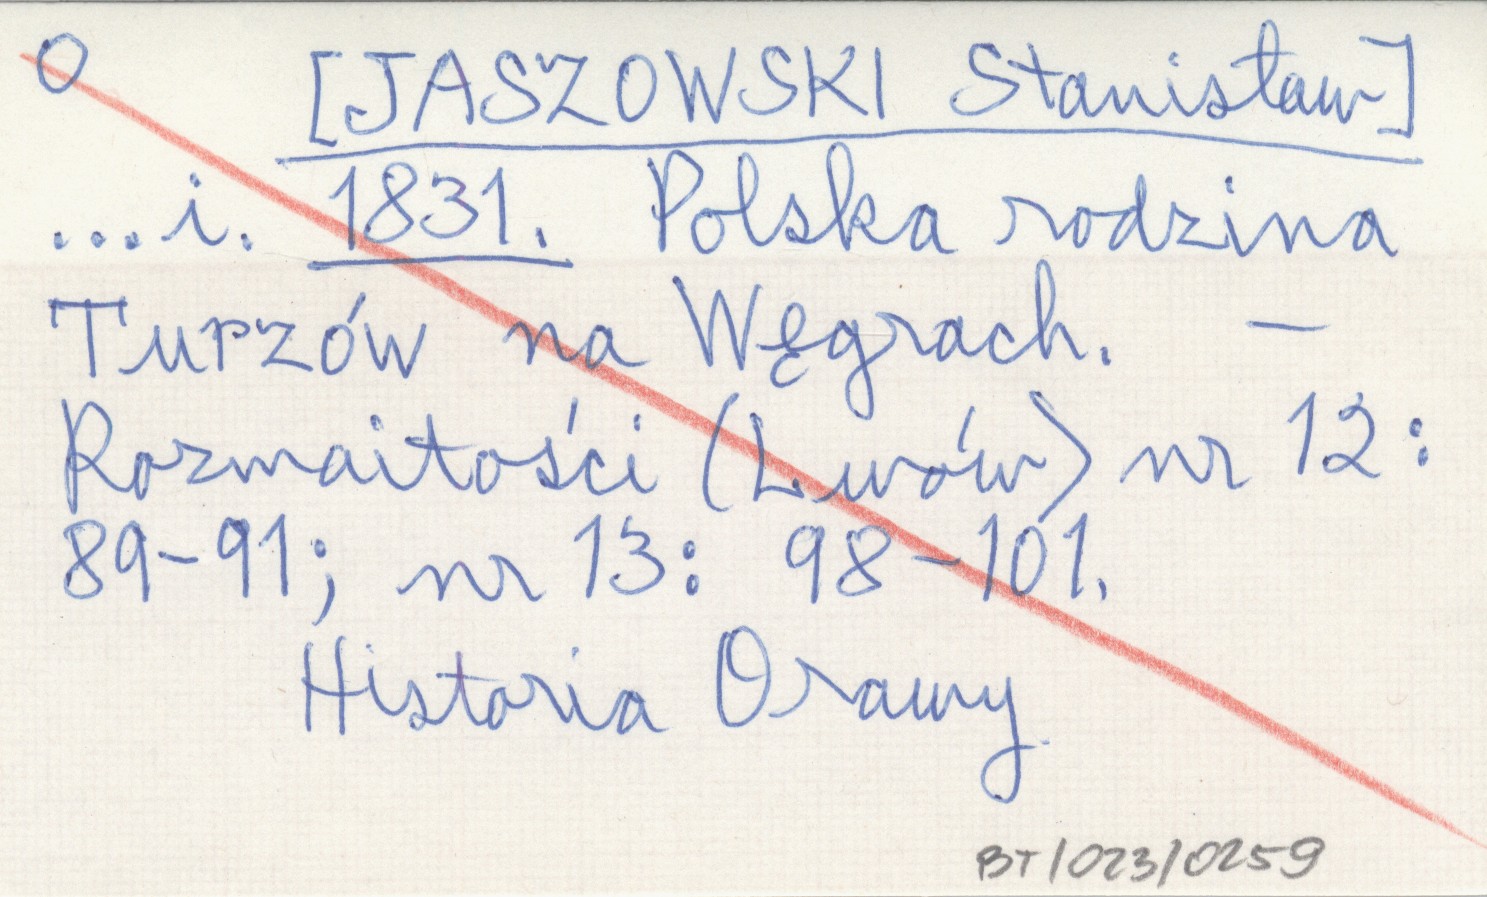 O [JASZOWSKI Stanisław]
...i. 1831. Polska rodzina
Turzów na Węgrach. –
Rozmaitości (Lwów) nr 12:
89-91; nr 13: 98-101.
Historia Orawy
BT/023/0259